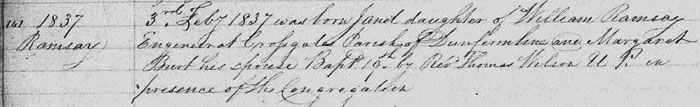 161 1837 3rd Feby 1837 was born Janet daughter of William Ramsay
Ramsay Engineer at Crossgates Parish of Dunfermline and Margaret
Burt his spouse Bapt 19th by Revd Thomas Wilson U P. in
presence of the Congregation